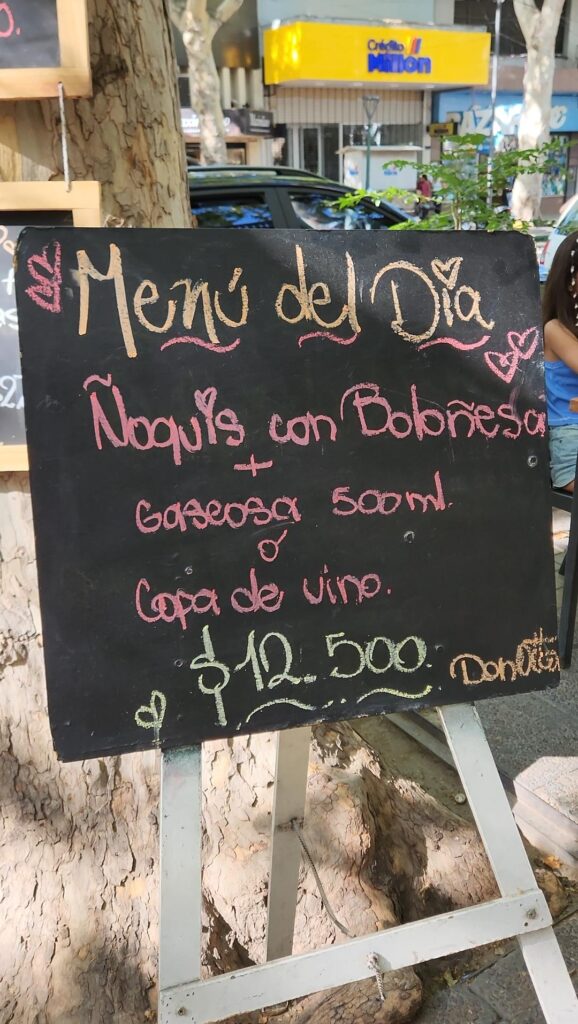 Crédito
Millon
Menú del Día
Ñoquis con Boloñesa
+
Gaseosa 500ml.
ó
Copa de vino.
$12.500.